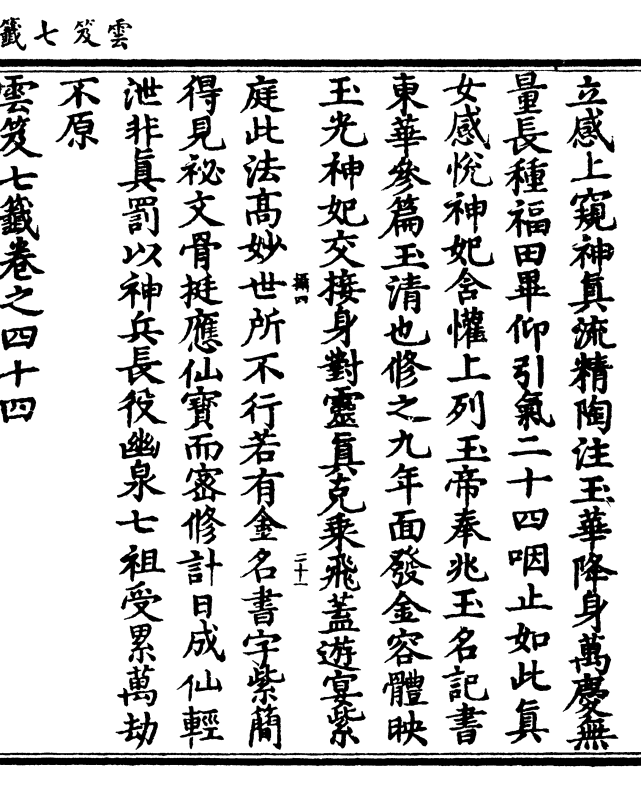 雲笈七籤
立感上窺神眞流精陶注玉華降身萬慶無
量長種福田畢仰引氣二十四咽止如此眞
女感悅神妃含懽上列玉帝奉兆玉名記書
東華參篇玉清也修之九年面發金容體映
玉光神妃交接身對靈眞克乗飛蓋遊宴紫
攝四
二十一
庭此法髙妙世所不行若有金名書字紫簡
得見祕文骨挺應仙寶而密修計日成仙輕
泄非眞罰以神兵長役幽泉七祖受累萬劫
不原
雲笈七籤卷之四十四